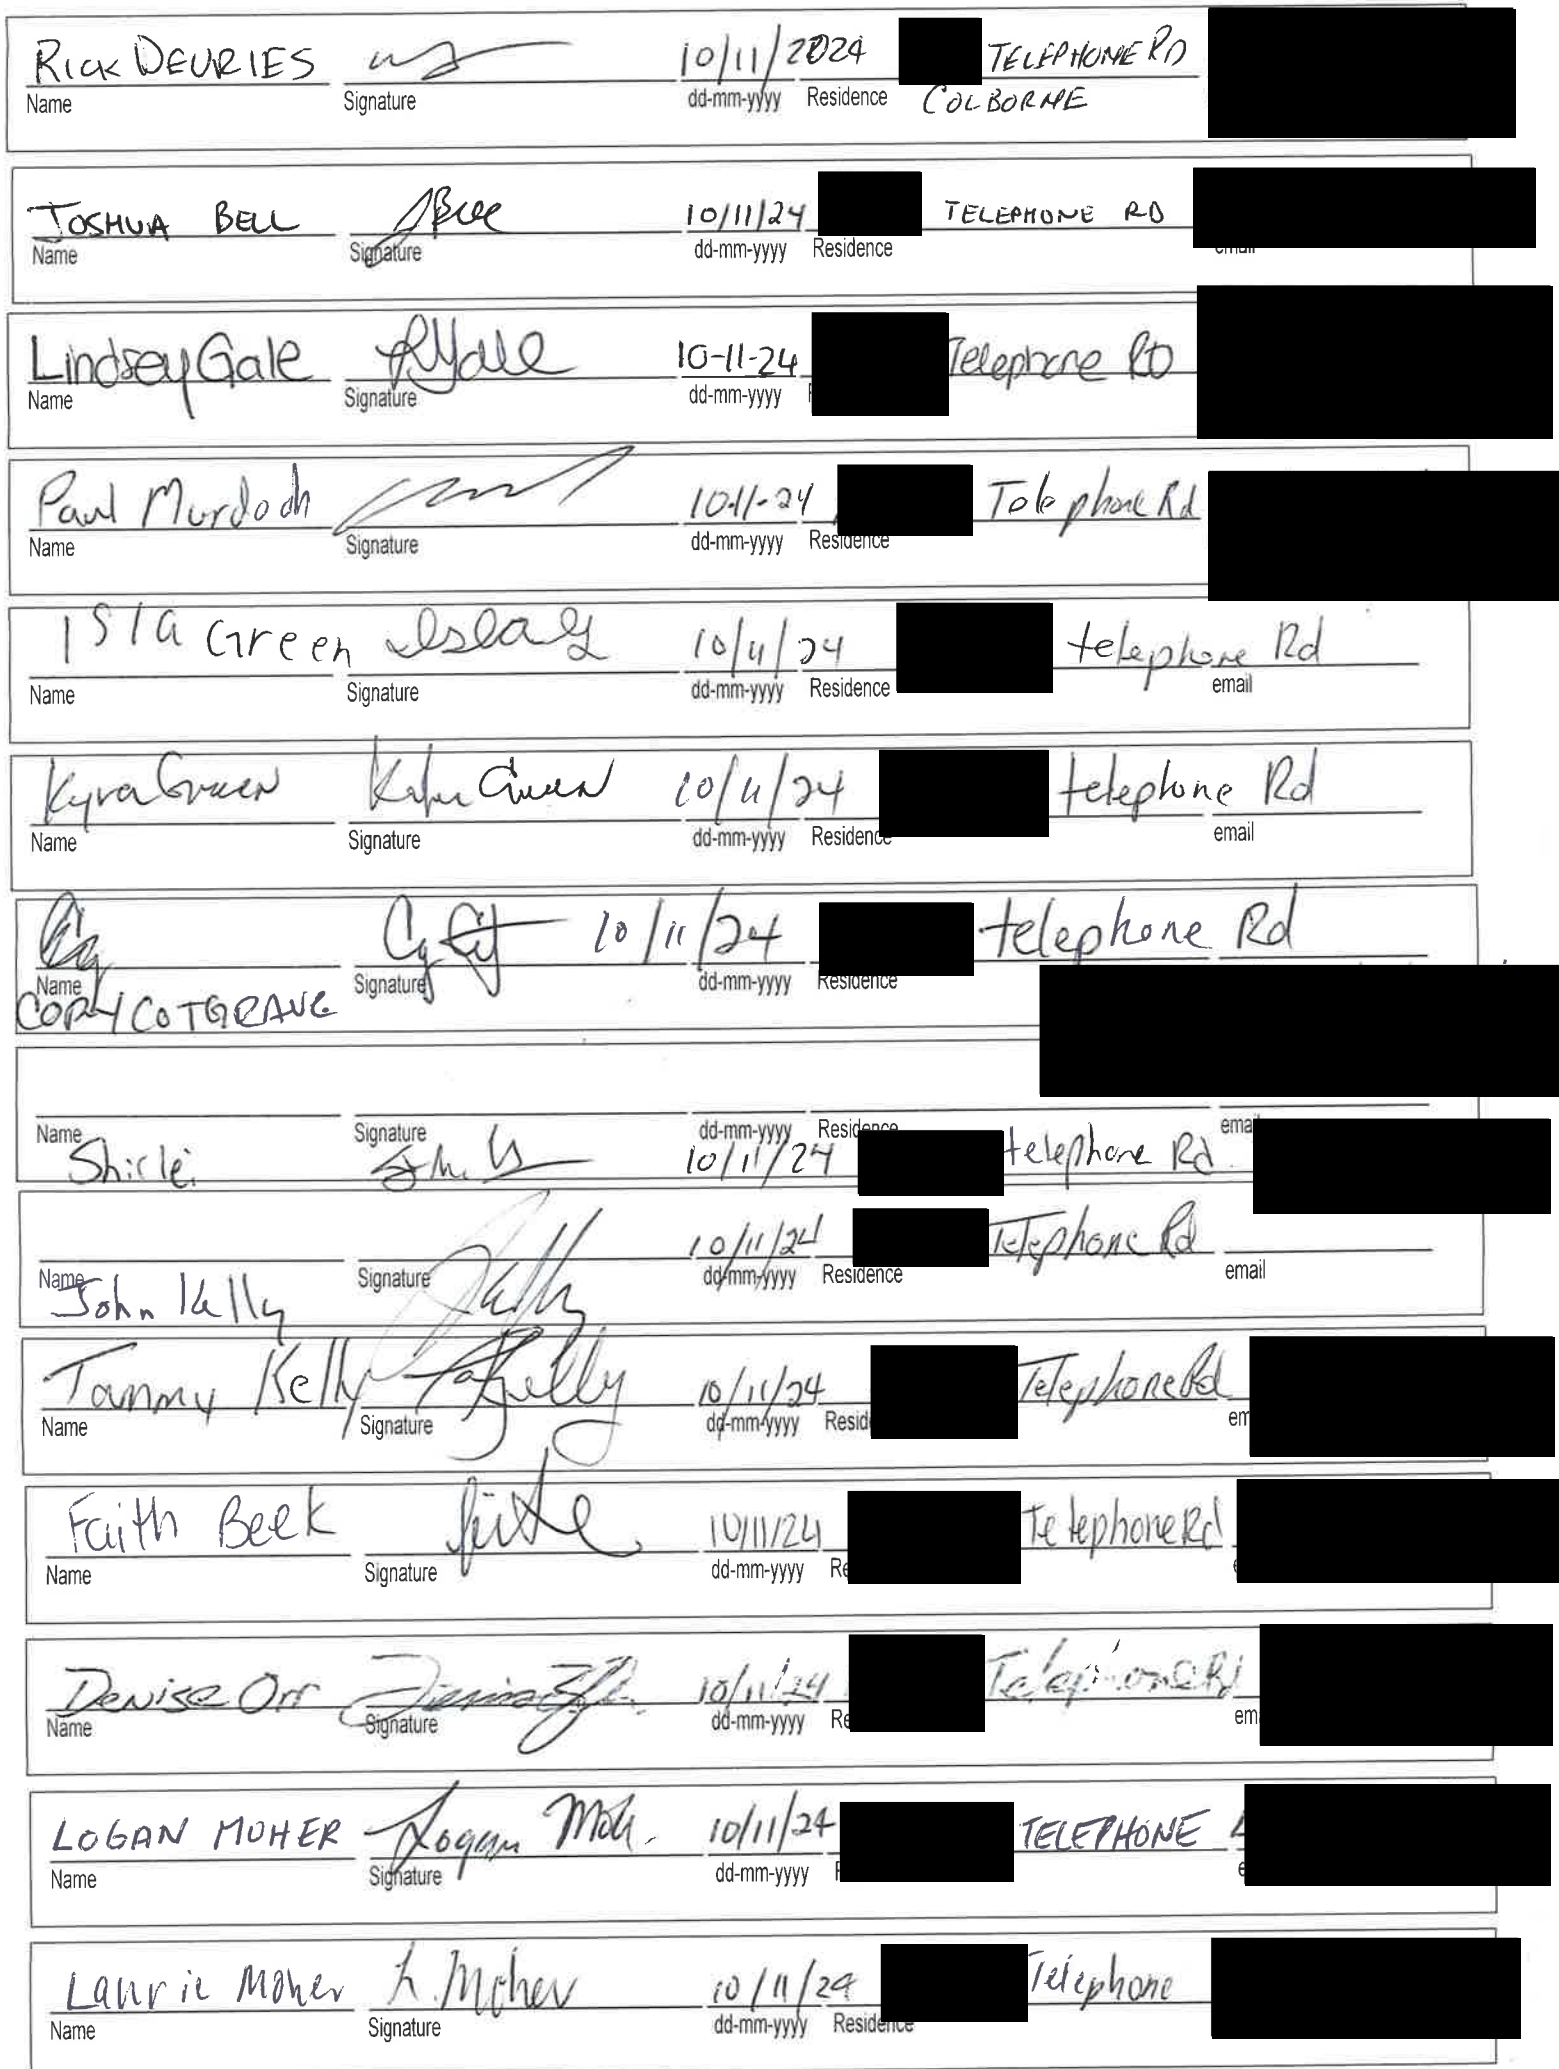 Rick DEVRIES 10/11/2024 TELEPHONE RD
Name Signature dd-mm-yyyy Residence COLBORNE
JOSHUA BELL JBell 10/11/24 TELEPHONE RD
Name Signature dd-mm-yyyy Residence email
Lindsey Gale LGale 10-11-24 Telephone RD
Name Signature dd-mm-yyyy
Paul Murdoch 10-11-24 Telephone Rd
Name Signature dd-mm-yyyy Residence
Isla Green Isla G 10/11/24 telephone Rd
Name Signature dd-mm-yyyy Residence email
Kyra Green Kyra Green 10/11/24 telephone Rd
Name Signature dd-mm-yyyy Residence email
10/11/24 telephone Rd
Name Signature dd-mm-yyyy Residence
CORY COTGRAVE
Name Signature dd-mm-yyyy Residence ema
Shirlei 10/11/24 telephone Rd
10/11/24 Telephone Rd
Name Signature dd-mm-yyyy Residence email
John Kelly JKelly
Tammy Kelly TaKelly 10/11/24 Telephone Rd
Name Signature dd-mm-yyyy Resid em
Faith Beek 10/11/24 Telephone Rd
Name Signature dd-mm-yyyy Re
Denise Orr 10/11/24 Telephone Rd
Name Signature dd-mm-yyyy Re em
LOGAN MOHER Logan Moh. 10/11/24 TELEPHONE
Name Signature dd-mm-yyyy
Laurie Moher L. Moher 10/11/24 Telephone
Name Signature dd-mm-yyyy Residence